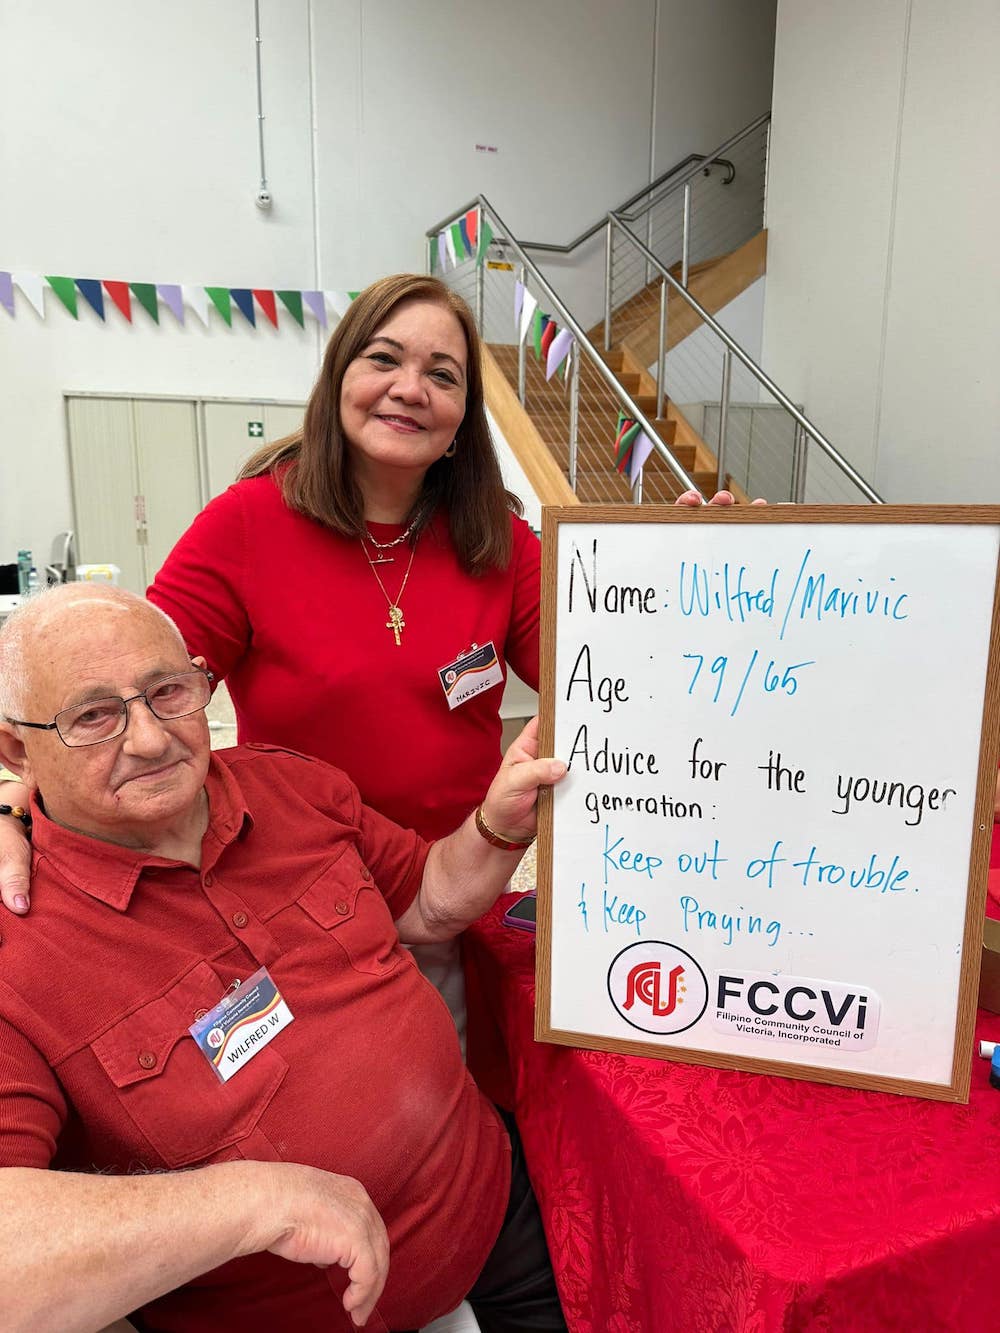 Name: Wilfred/Marivic
Age: 79/65
Advice for the younger
generation:
Keep out of trouble.
& Keep Praying...
FCCVi
Filipino Community Council of
Victoria, Incorporated
MARIVIC
Filipino Community Council
of Victoria Incorporated
WILFRED W